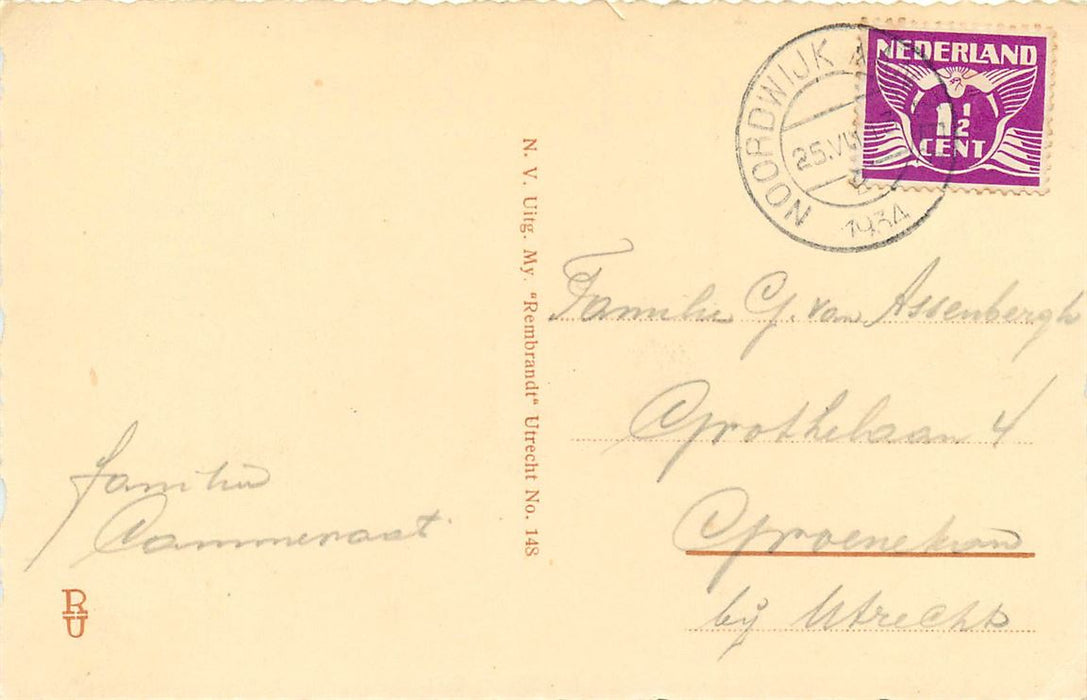 NEDERLAND
1½
CENT
NOORDWIJK A
25.VII
1934
N. V. Uitg. My. "Rembrandt" Utrecht No. 148
Familie G. van Assenbergh
Grothelaan 4
Groenekan
bij Utrecht
familie
Cammeraat
RU